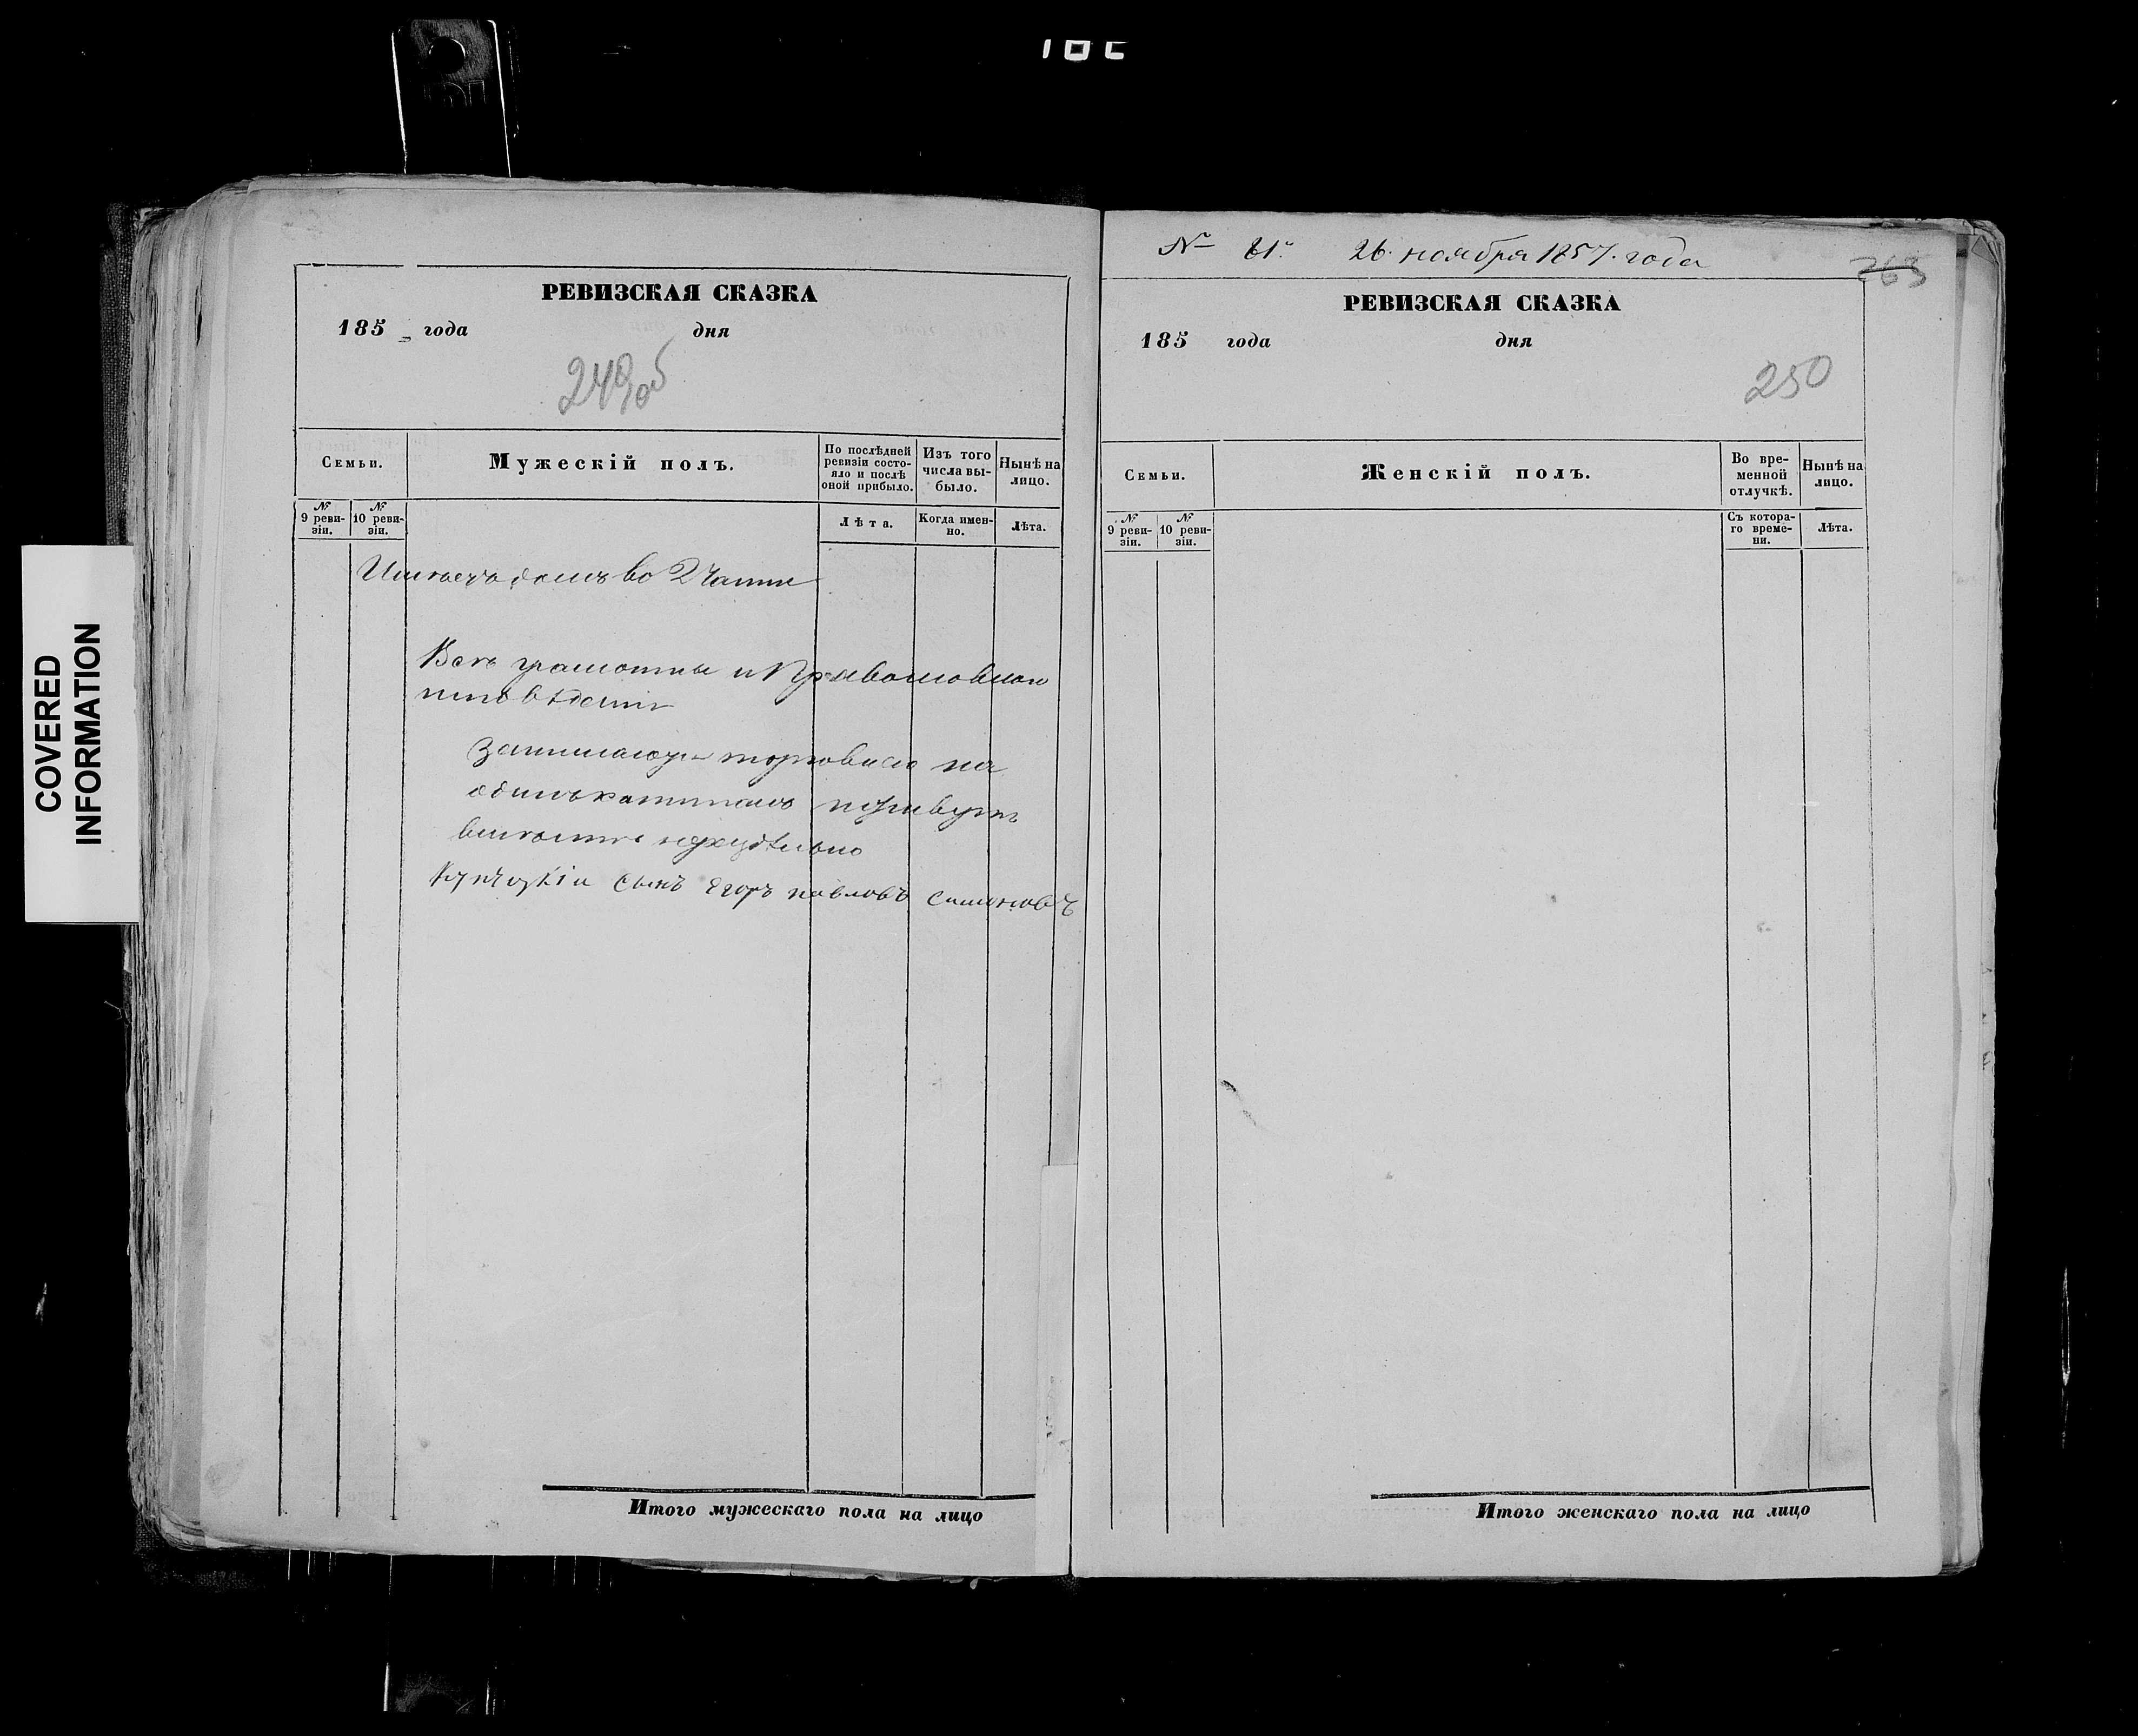 COVERED INFORMATION
РЕВИЗСКАЯ СКАЗКА
185 года дня
249об
Семьи.
Мужескій полъ.
По послѣдней ревизіи состо-
яло и послѣ оной прибыло.
Изъ того числа вы-
было.
Нынѣ на лицо.
№ 9 реви-
зіи.
№ 10 реви-
зіи.
Лѣта.
Когда имен-
но.
Лѣта.
домъ во 2 части
Всѣ грамотны и
торговлею на
Купецкіи сынъ Егоръ павловъ симоновъ
Итого мужескаго пола на лицо
№ 81. 26. ноября 1857. года
263
РЕВИЗСКАЯ СКАЗКА
185 года дня
250
Семьи.
Женскій полъ.
Во вре-
менной
отлучкѣ.
Нынѣ на лицо.
№ 9 реви-
зіи.
№ 10 реви-
зіи.
Съ котора-
го време-
ни.
Лѣта.
Итого женскаго пола на лицо